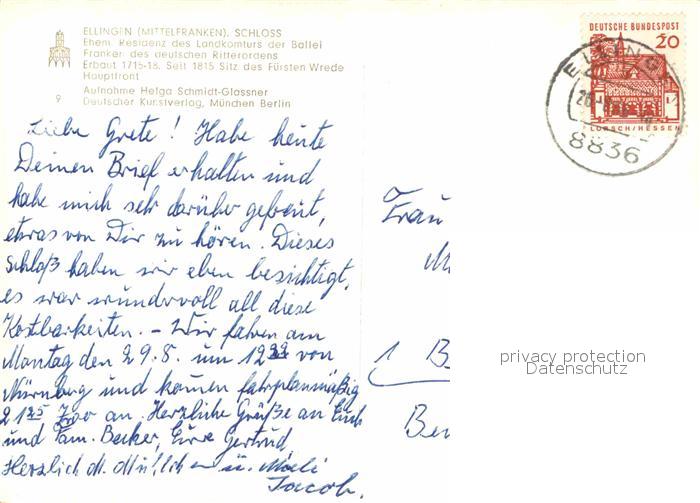 ELLINGEN (MITTELFRANKEN). SCHLOSS
Ehem. Residenz des Landkomturs der Ballei
Franken des deutschen Ritterordens
Erbaut 1715-18. Seit 1815 Sitz des Fürsten Wrede
Hauptfront
9
Aufnahme Helga Schmidt-Glassner
Deutscher Kunstverlag, München Berlin
DEUTSCHE BUNDESPOST
20
LORSCH/HESSEN
ELLINGEN
8836
Liebe Grete! Habe heute
Deinen Brief erhalten und
habe mich sehr darüber gefreut,
etwas von Dir zu hören. Dieses
Schloß haben wir eben besichtigt,
es war wundervoll all diese
Kostbarkeiten. – Wir fahren am
Montag den 29.8. um 12 von
Nürnberg und kommen fahrplanmäßig
21 25 Zoo an. Herzliche Grüße an Euch
und Fam. Becker, Eure Gertrud,
Herzlich u.
Jacob.
Frau
M
1 B
Ber
privacy protection
Datenschutz